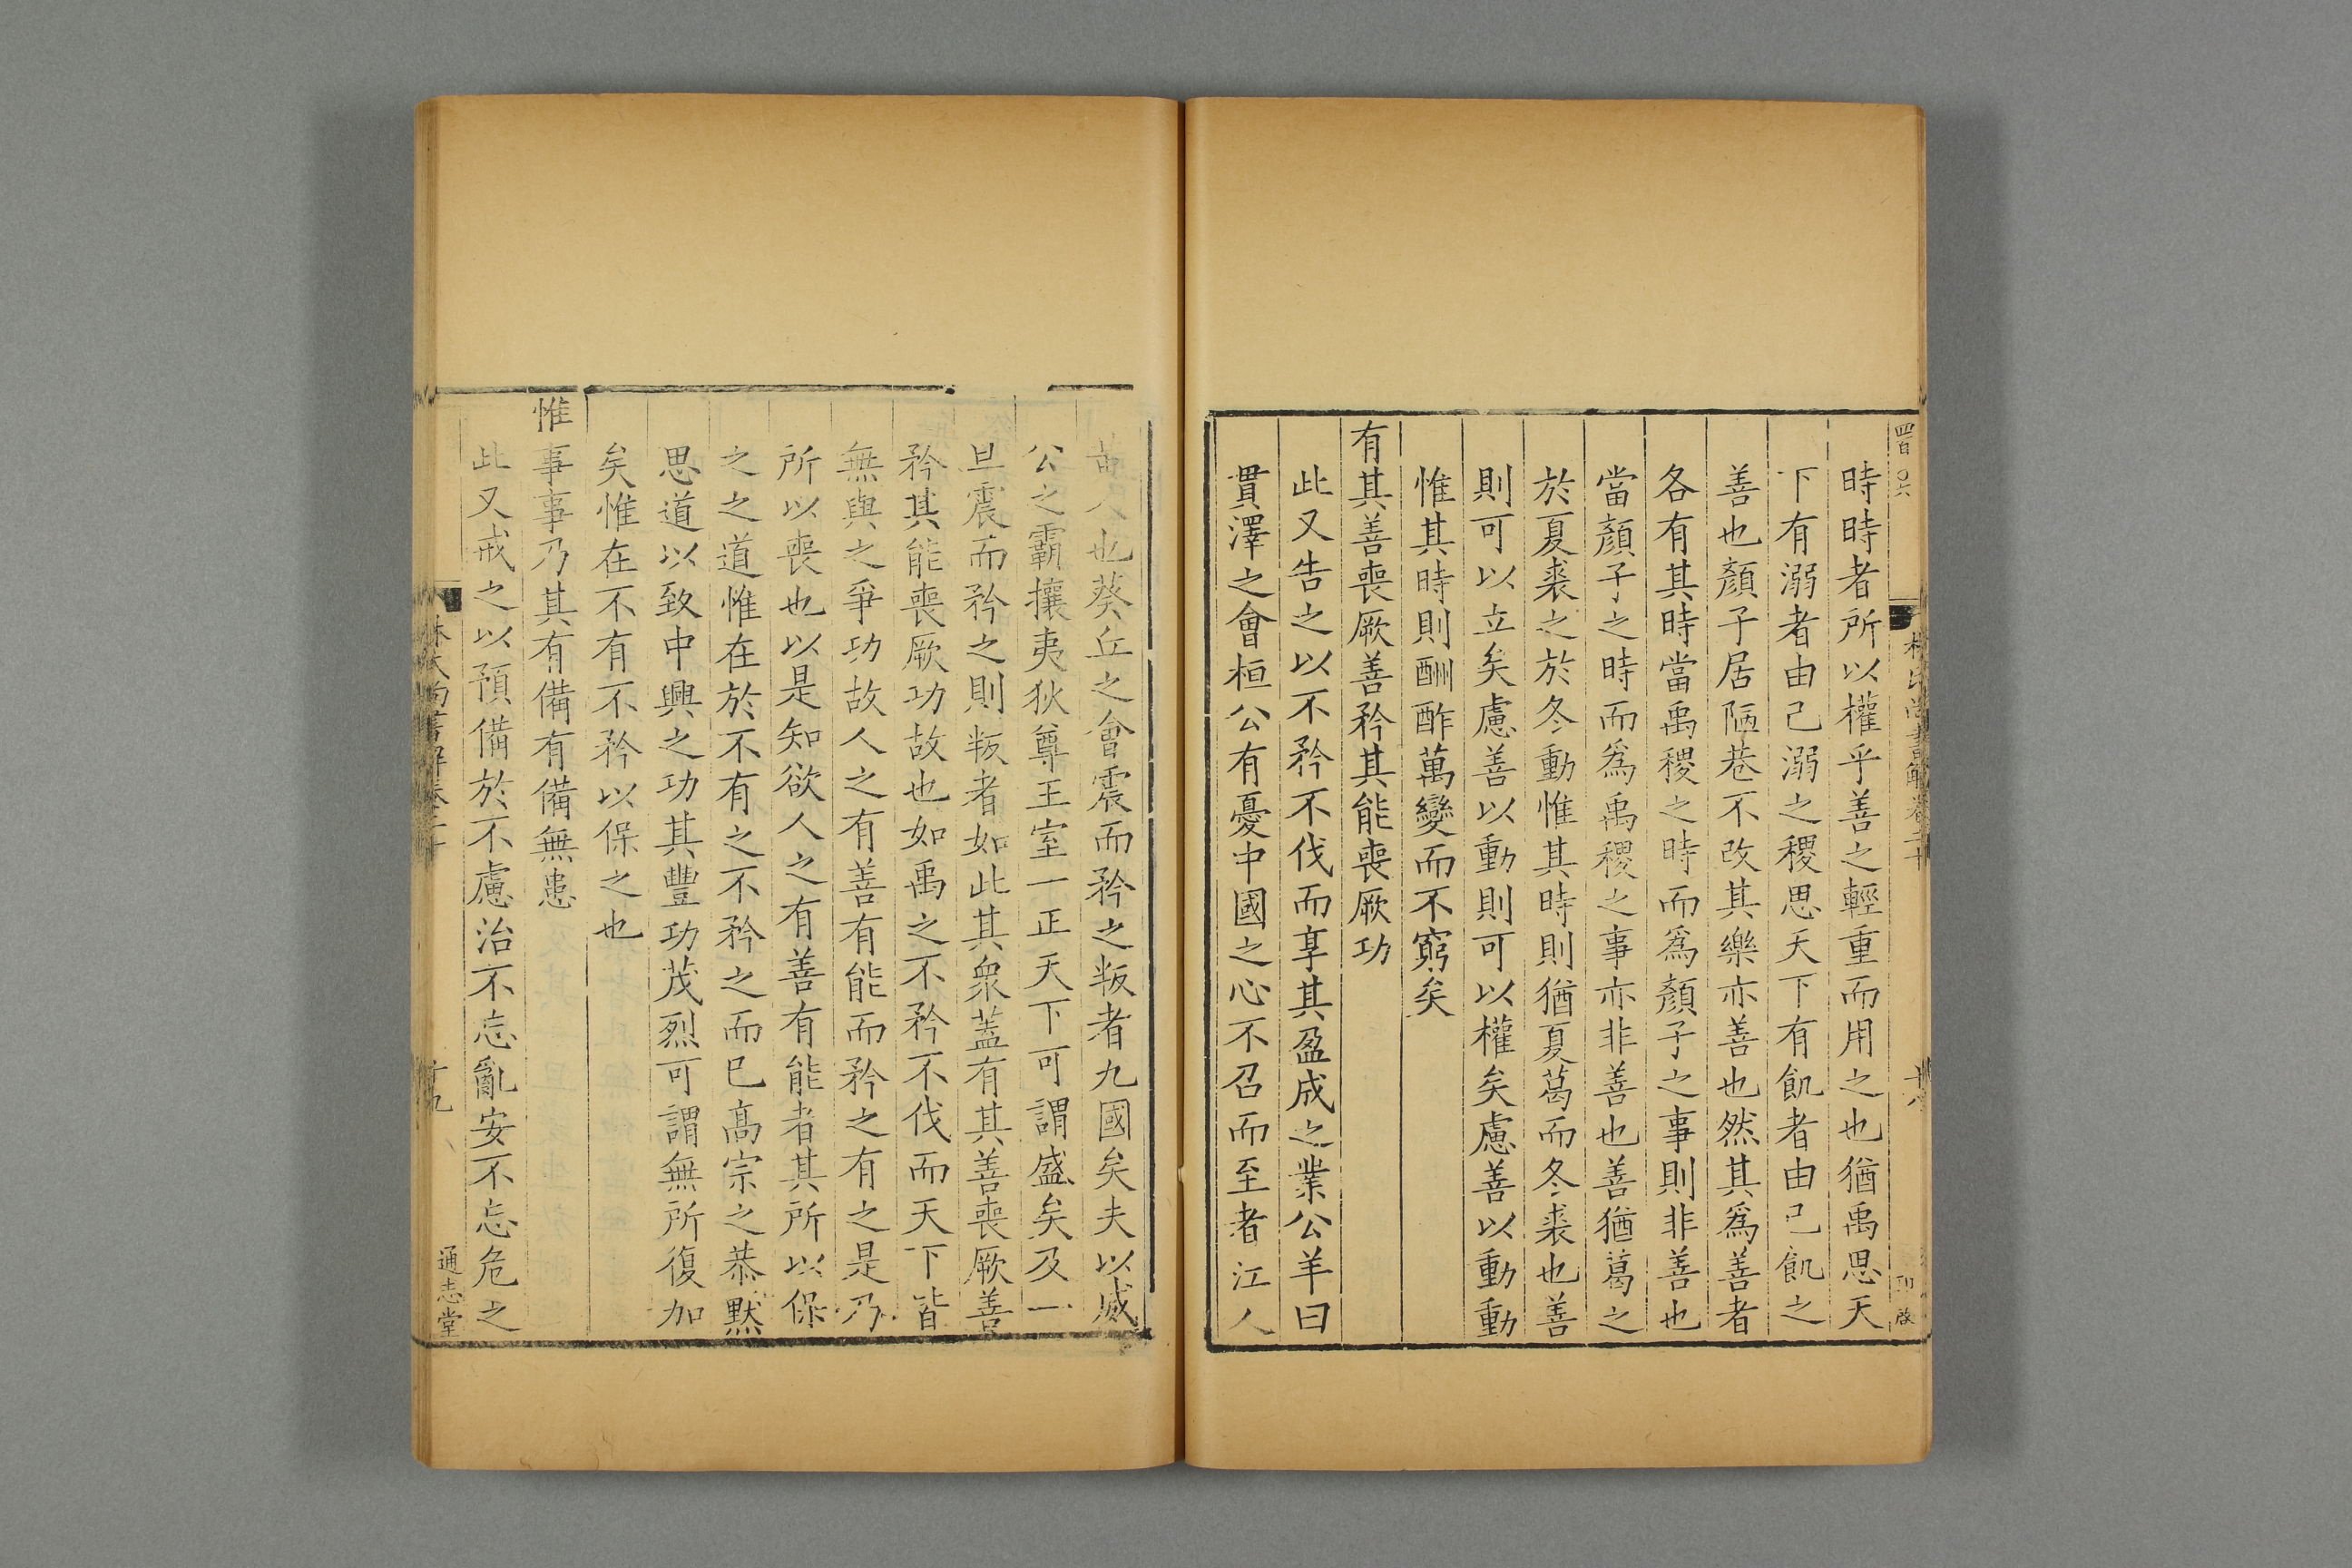 四百〇六
林氏尚書解卷二十
十八
時時者所以權乎善之輕重而用之也猶禹思天
下有溺者由己溺之稷思天下有飢者由己飢之
善也顏子居陋巷不改其樂亦善也然其爲善者
各有其時當禹稷之時而爲顏子之事則非善也
當顏子之時而爲禹稷之事亦非善也善猶葛之
於夏裘之於冬動惟其時則猶夏葛而冬裘也善
則可以立矣慮善以動則可以權矣慮善以動動
惟其時則酬酢萬變而不窮矣
有其善喪厥善矜其能喪厥功
此又告之以不矜不伐而享其盈成之業公羊曰
貫澤之會桓公有憂中國之心不召而至者江人
黃人也葵丘之會震而矜之叛者九國矣夫以威
公之霸攘夷狄尊王室一正天下可謂盛矣及一
旦震而矜之則叛者如此其衆蓋有其善喪厥善
矜其能喪厥功故也如禹之不矜不伐而天下皆
無與之爭功故人之有善有能而矜之有之是乃
所以喪也以是知欲人之有善有能者其所以保
之之道惟在於不有之不矜之而已高宗之恭默
思道以致中興之功其豐功茂烈可謂無所復加
矣惟在不有不矜以保之也
惟事事乃其有備有備無患
此又戒之以預備於不慮治不忘亂安不忘危之
林氏尚書解卷二十
十九
通志堂